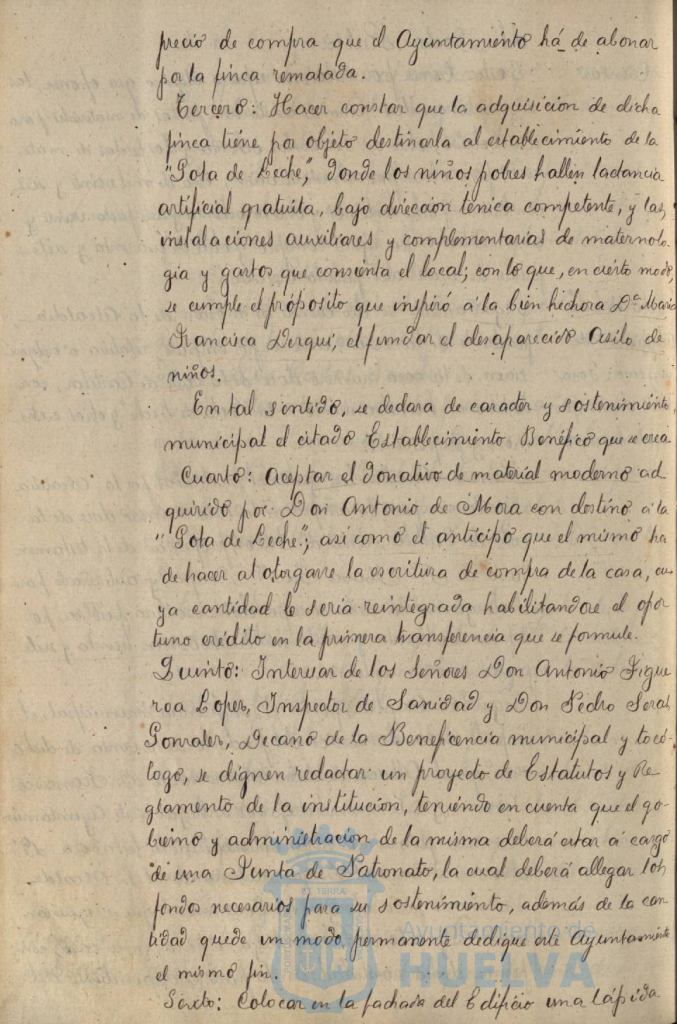 precio de compra que el Ayuntamiento há de abonar
por la finca rematada.
Tercero: Hacer constar que la adquisicion de dicha
finca tiene por objeto destinarla al establecimiento de la
"Gota de Leche", donde los niños pobres hallen lactancia
artificial gratuita, bajo direccion tenica competente, y las
instalaciones auxiliares y complementarias de maternolo
gia y gastos que consienta el local; con lo que, en cierto modo,
se cumple el propósito que inspiró á la bien hechora Dª Maria
Francisca Derqui, el fundar el desaparecido Asilo de
niños.
En tal sentido, se declara de caracter y sostenimiento
municipal el citado Establecimiento Benéfico que se crea
Cuarto: Aceptar el donativo de material moderno ad
quirido por Don Antonio de Mora con destino á la
"Gota de Leche", asi como el anticipo que el mismo ha
de hacer al otorgarse la escritura de compra de la casa, cu
ya cantidad le seria reintegrada habilitandose el opor
tuno crédito en la primera transferencia que se formule.
Quinto: Interesar de los Señores Don Antonio Figue
roa Lopez, Inspector de Sanidad y Don Pedro
Gonzalez, Decano de la Beneficencia municipal y tocó-
logo, se dignen redactar un proyecto de Estatutos y Re
glamento de la institución, teniendo en cuenta que el go-
bierno y administración de la misma deberá estar á cargo
de una Junta de Patronato, la cual deberá allegar los
fondos necesarios para su sostenimiento, además de la can
tidad que de un modo permanente dedique este Ayuntamiento
el mismo fin.
Sexto: Colocar en la fachada del Edificio una lápida
Ayuntamiento de
HUELVA